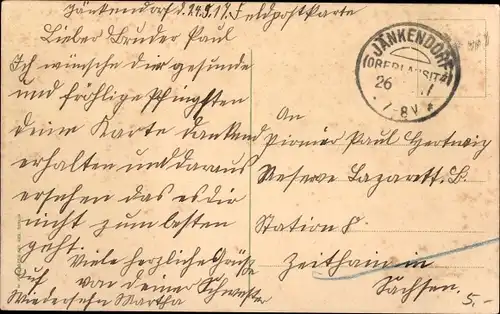 Jänkendorf d. 24.5.17. Feldpostkarte
Lieber Bruder Paul
Ich wünsche dier gesunde
und fröhlige Pfingsten
deine Karte dankend
erhalten und daraus
ersehen das es dir
nicht zum besten
geht.
Viele herzliche Grüße
von deiner Schwester
Auf
Wiedersehn Martha
JÄNKENDORF
(OBERLAUSITZ)
26
7-8V
An
Pionier Paul Hertwig
Reserve Lazarett. B.
Station 8.
Zeithain in
Sachsen.
5.-